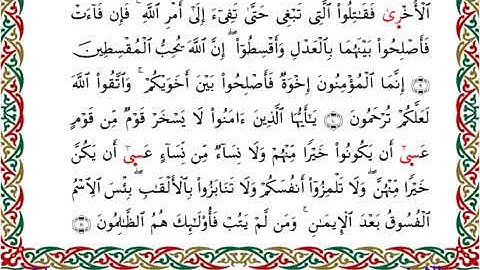 ٱلۡأُخۡرَىٰ فَقَٰتِلُواْ ٱلَّتِي تَبۡغِي حَتَّىٰ تَفِيٓءَ إِلَىٰٓ أَمۡرِ ٱللَّهِۚ فَإِن فَآءَتۡ
فَأَصۡلِحُواْ بَيۡنَهُمَا بِٱلۡعَدۡلِ وَأَقۡسِطُوٓاْۖ إِنَّ ٱللَّهَ يُحِبُّ ٱلۡمُقۡسِطِينَ
۝٩ إِنَّمَا ٱلۡمُؤۡمِنُونَ إِخۡوَةٞ فَأَصۡلِحُواْ بَيۡنَ أَخَوَيۡكُمۡۚ وَٱتَّقُواْ ٱللَّهَ
لَعَلَّكُمۡ تُرۡحَمُونَ ۝١٠ يَٰٓأَيُّهَا ٱلَّذِينَ ءَامَنُواْ لَا يَسۡخَرۡ قَوۡمٞ مِّن قَوۡمٍ
عَسَىٰٓ أَن يَكُونُواْ خَيۡرٗا مِّنۡهُمۡ وَلَا نِسَآءٞ مِّن نِّسَآءٍ عَسَىٰٓ أَن يَكُنَّ
خَيۡرٗا مِّنۡهُنَّۖ وَلَا تَلۡمِزُوٓاْ أَنفُسَكُمۡ وَلَا تَنَابَزُواْ بِٱلۡأَلۡقَٰبِۖ بِئۡسَ ٱلِٱسۡمُ
ٱلۡفُسُوقُ بَعۡدَ ٱلۡإِيمَٰنِۚ وَمَن لَّمۡ يَتُبۡ فَأُوْلَٰٓئِكَ هُمُ ٱلظَّٰلِمُونَ ۝١١